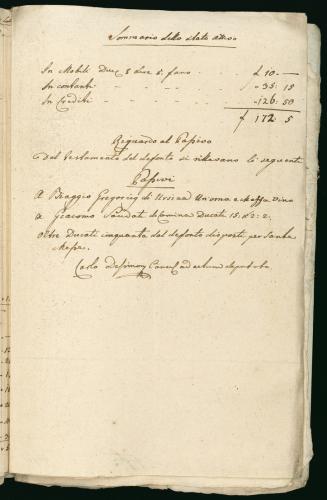 Sommario dello stato attivo
In Mobili Duc. 8 Lire 5. fano - - £ 10. —
In contanti - - - - 35: 15
In Crediti - - - - 126: 50
f 172: 5
Riguardo al Passivo
Dal Testamento del defonto si rilevano li seguenti
Passivi
A Biaggio Gregorig di Ursina Un'orna e Mezza vino
a Giacomo Ducati 15: £ 2: 2.
oltre Ducati cinquanta dal defonto disposti per Sante
Messe.
Carlo